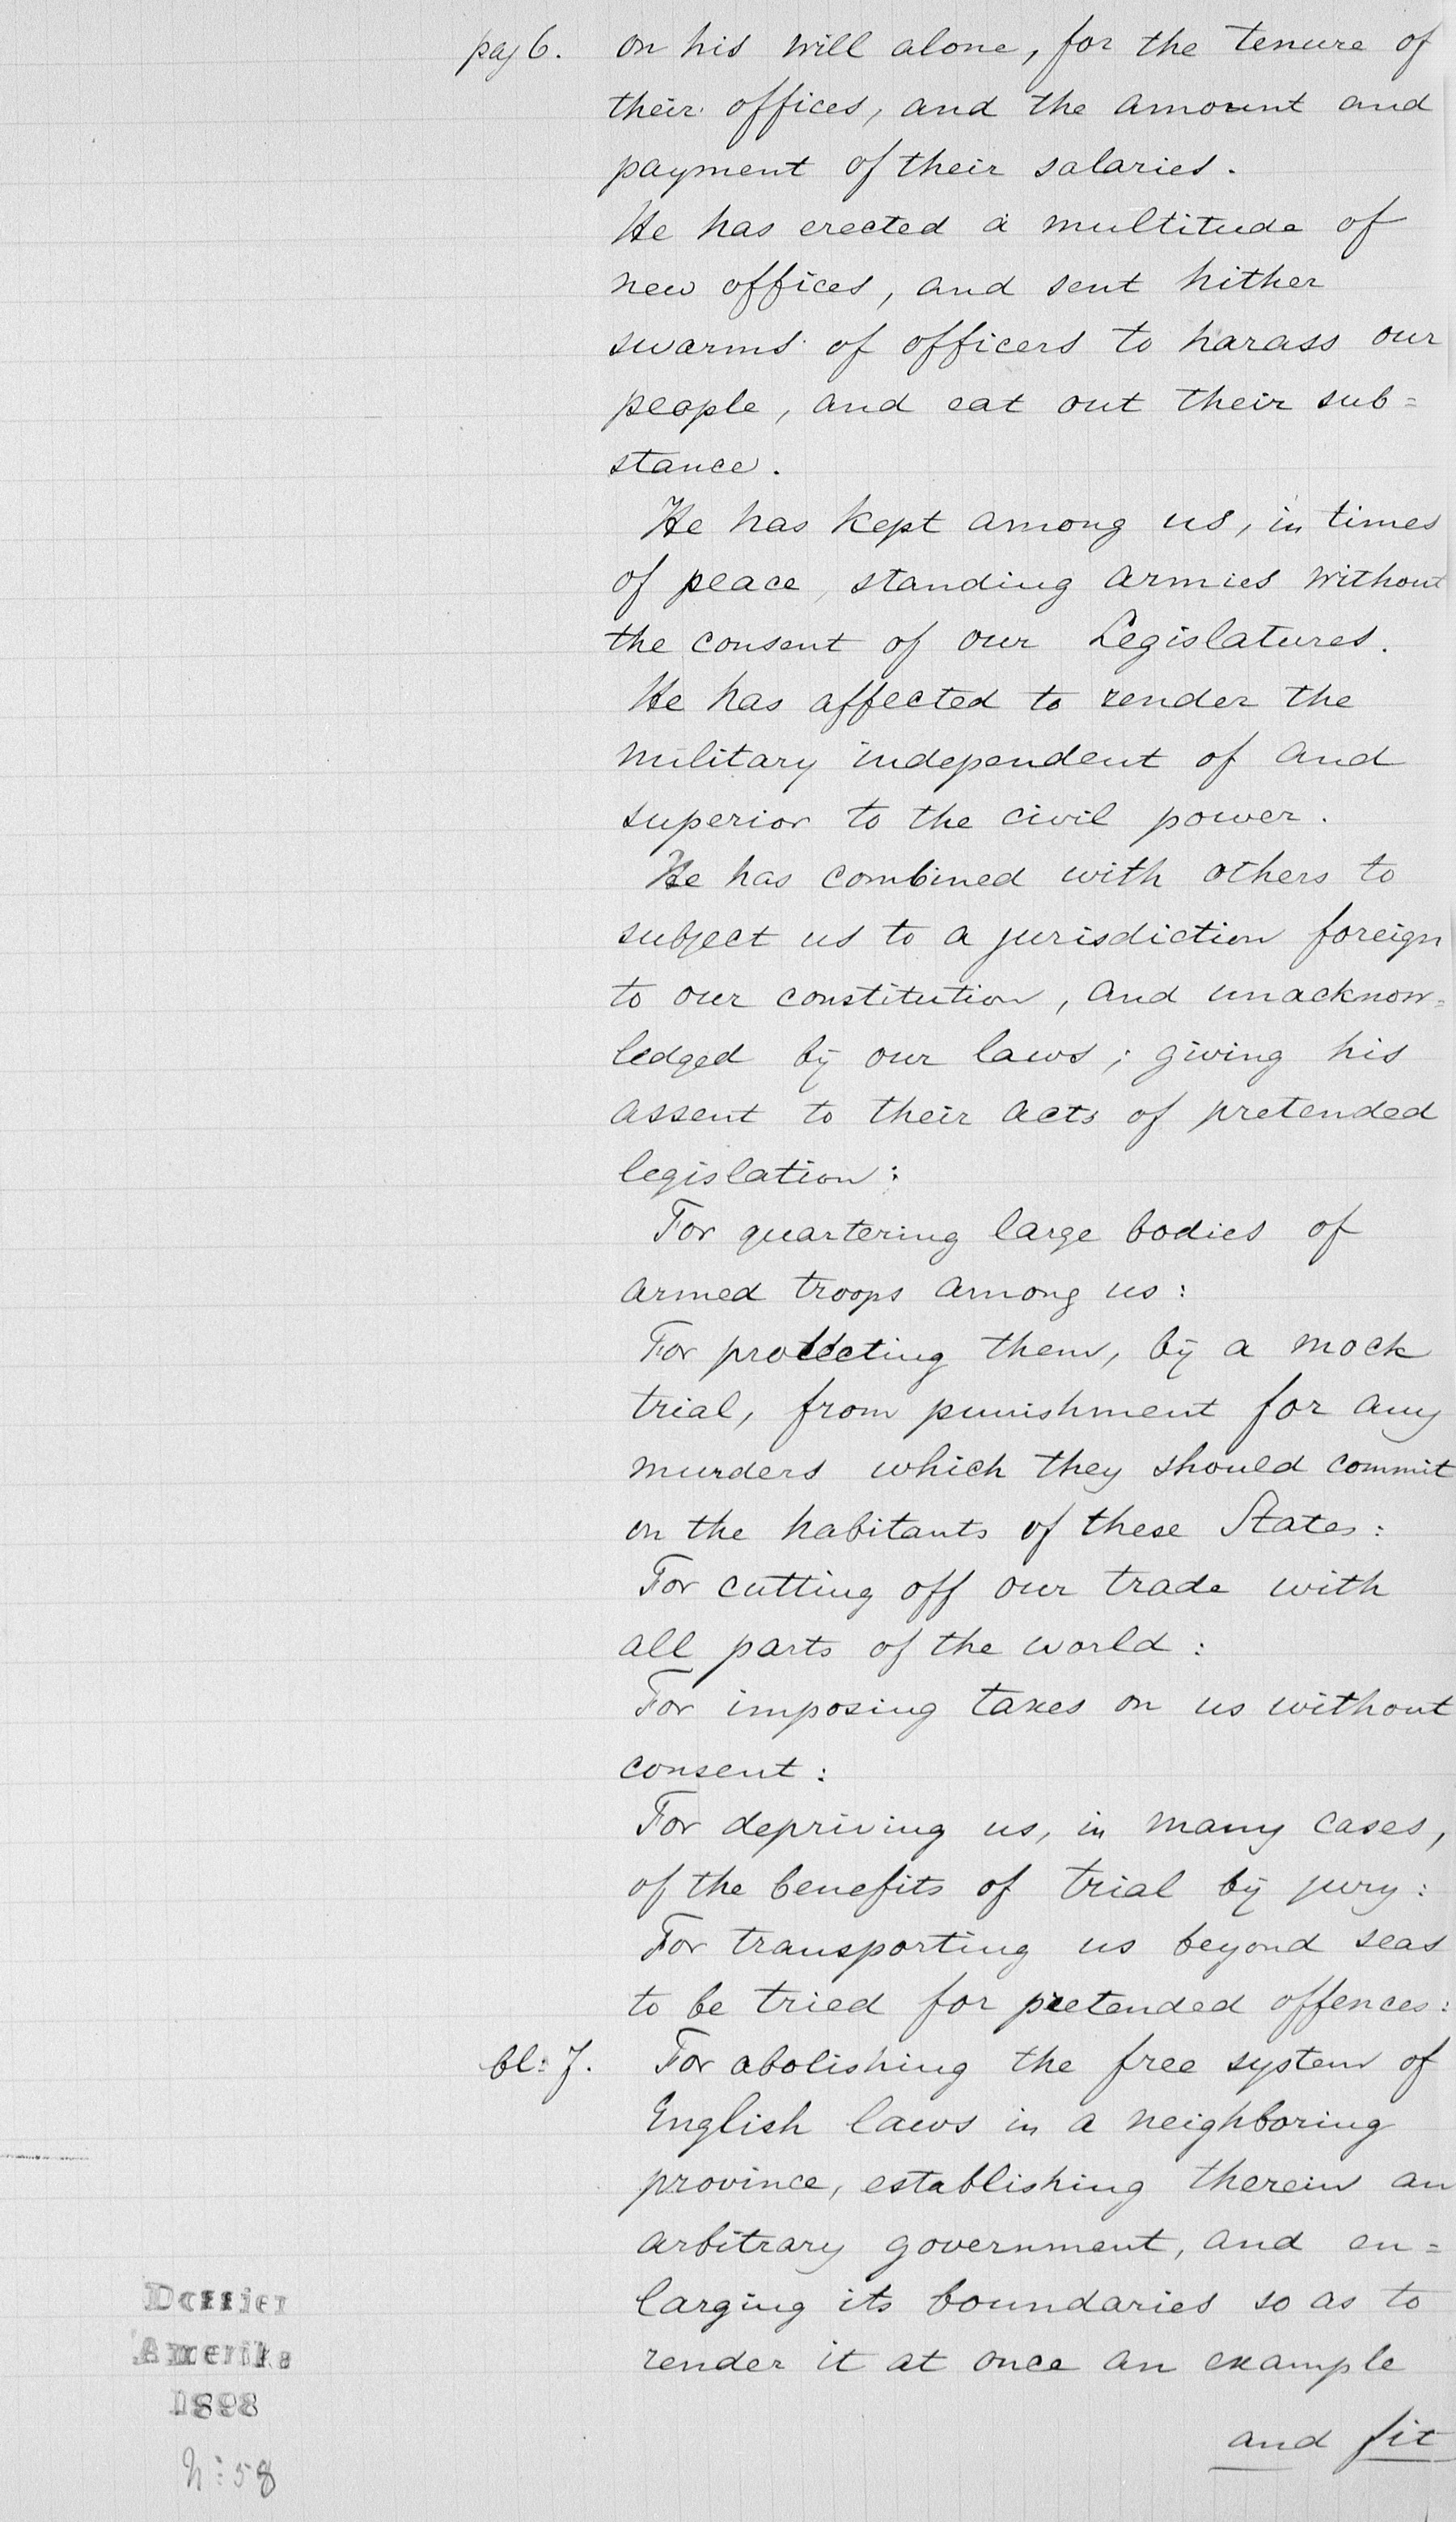 pag 6. on his will alone, for the tenure of
their offices, and the amount and
payment of their salaries.
He has erected a multitude of
new offices, and sent hither
swarms of officers to harass our
people, and eat out their sub=
stance.
He has kept among us, in times
of peace, standing armies without
the consent of our Legislatures.
He has affected to render the
military independent of and
superior to the civil power.
He has combined with others to
subject us to a jurisdiction foreign
to our constitution, and unacknow=
ledged by our laws; giving his
assent to their acts of pretended
legislation:
For quartering large bodies of
armed troops among us:
For protecting them, by a mock
trial, from punishment for any
murders which they should commit
on the habitants of these States:
For cutting off our trade with
all parts of the world:
For imposing taxes on us without
consent:
For depriving us, in many cases,
of the benefits of trial by jury:
For transporting us beyond seas
to be tried for pretended offences:
bl: 7. For abolishing the free system of
English laws in a neighboring
province, establishing therein an
arbitrary government, and en=
larging its boundaries so as to
render it at once an example
and fit
Dossier
Amerika
1898
N: 58